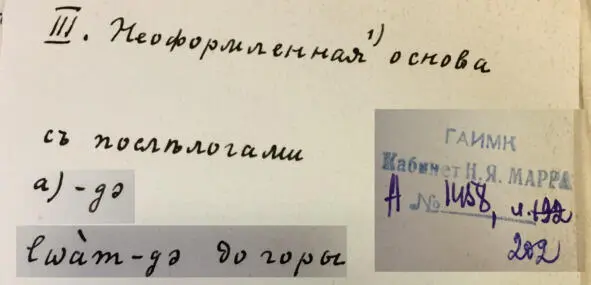 III. Неоформленная¹⁾ основа
съ послѣлогами
а) -дә
lшàm-дә до горы
ГАИМК
Кабинет Н.Я. МАРРА
А № 1458,
202